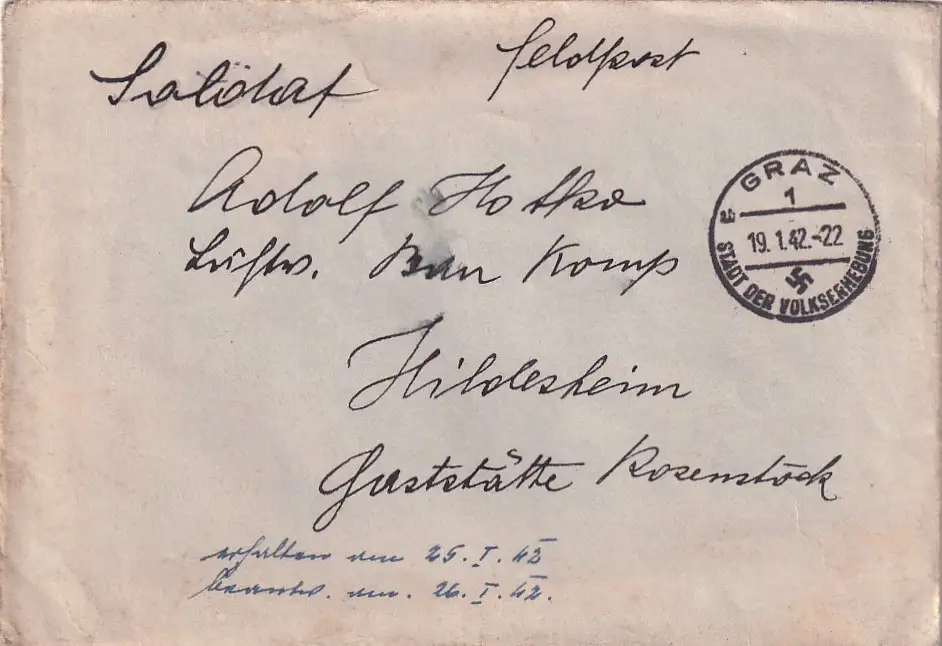 Feldpost
Soldat
Adolf Hotko
Luftw. Bau Komp
Hildesheim
Gaststätte Rosenstock
erhalten am 25. I. 42
beantw. am. 26. I. 42.
GRAZ
1
E
19. 1. 42.-22
STADT DER VOLKSERHEBUNG